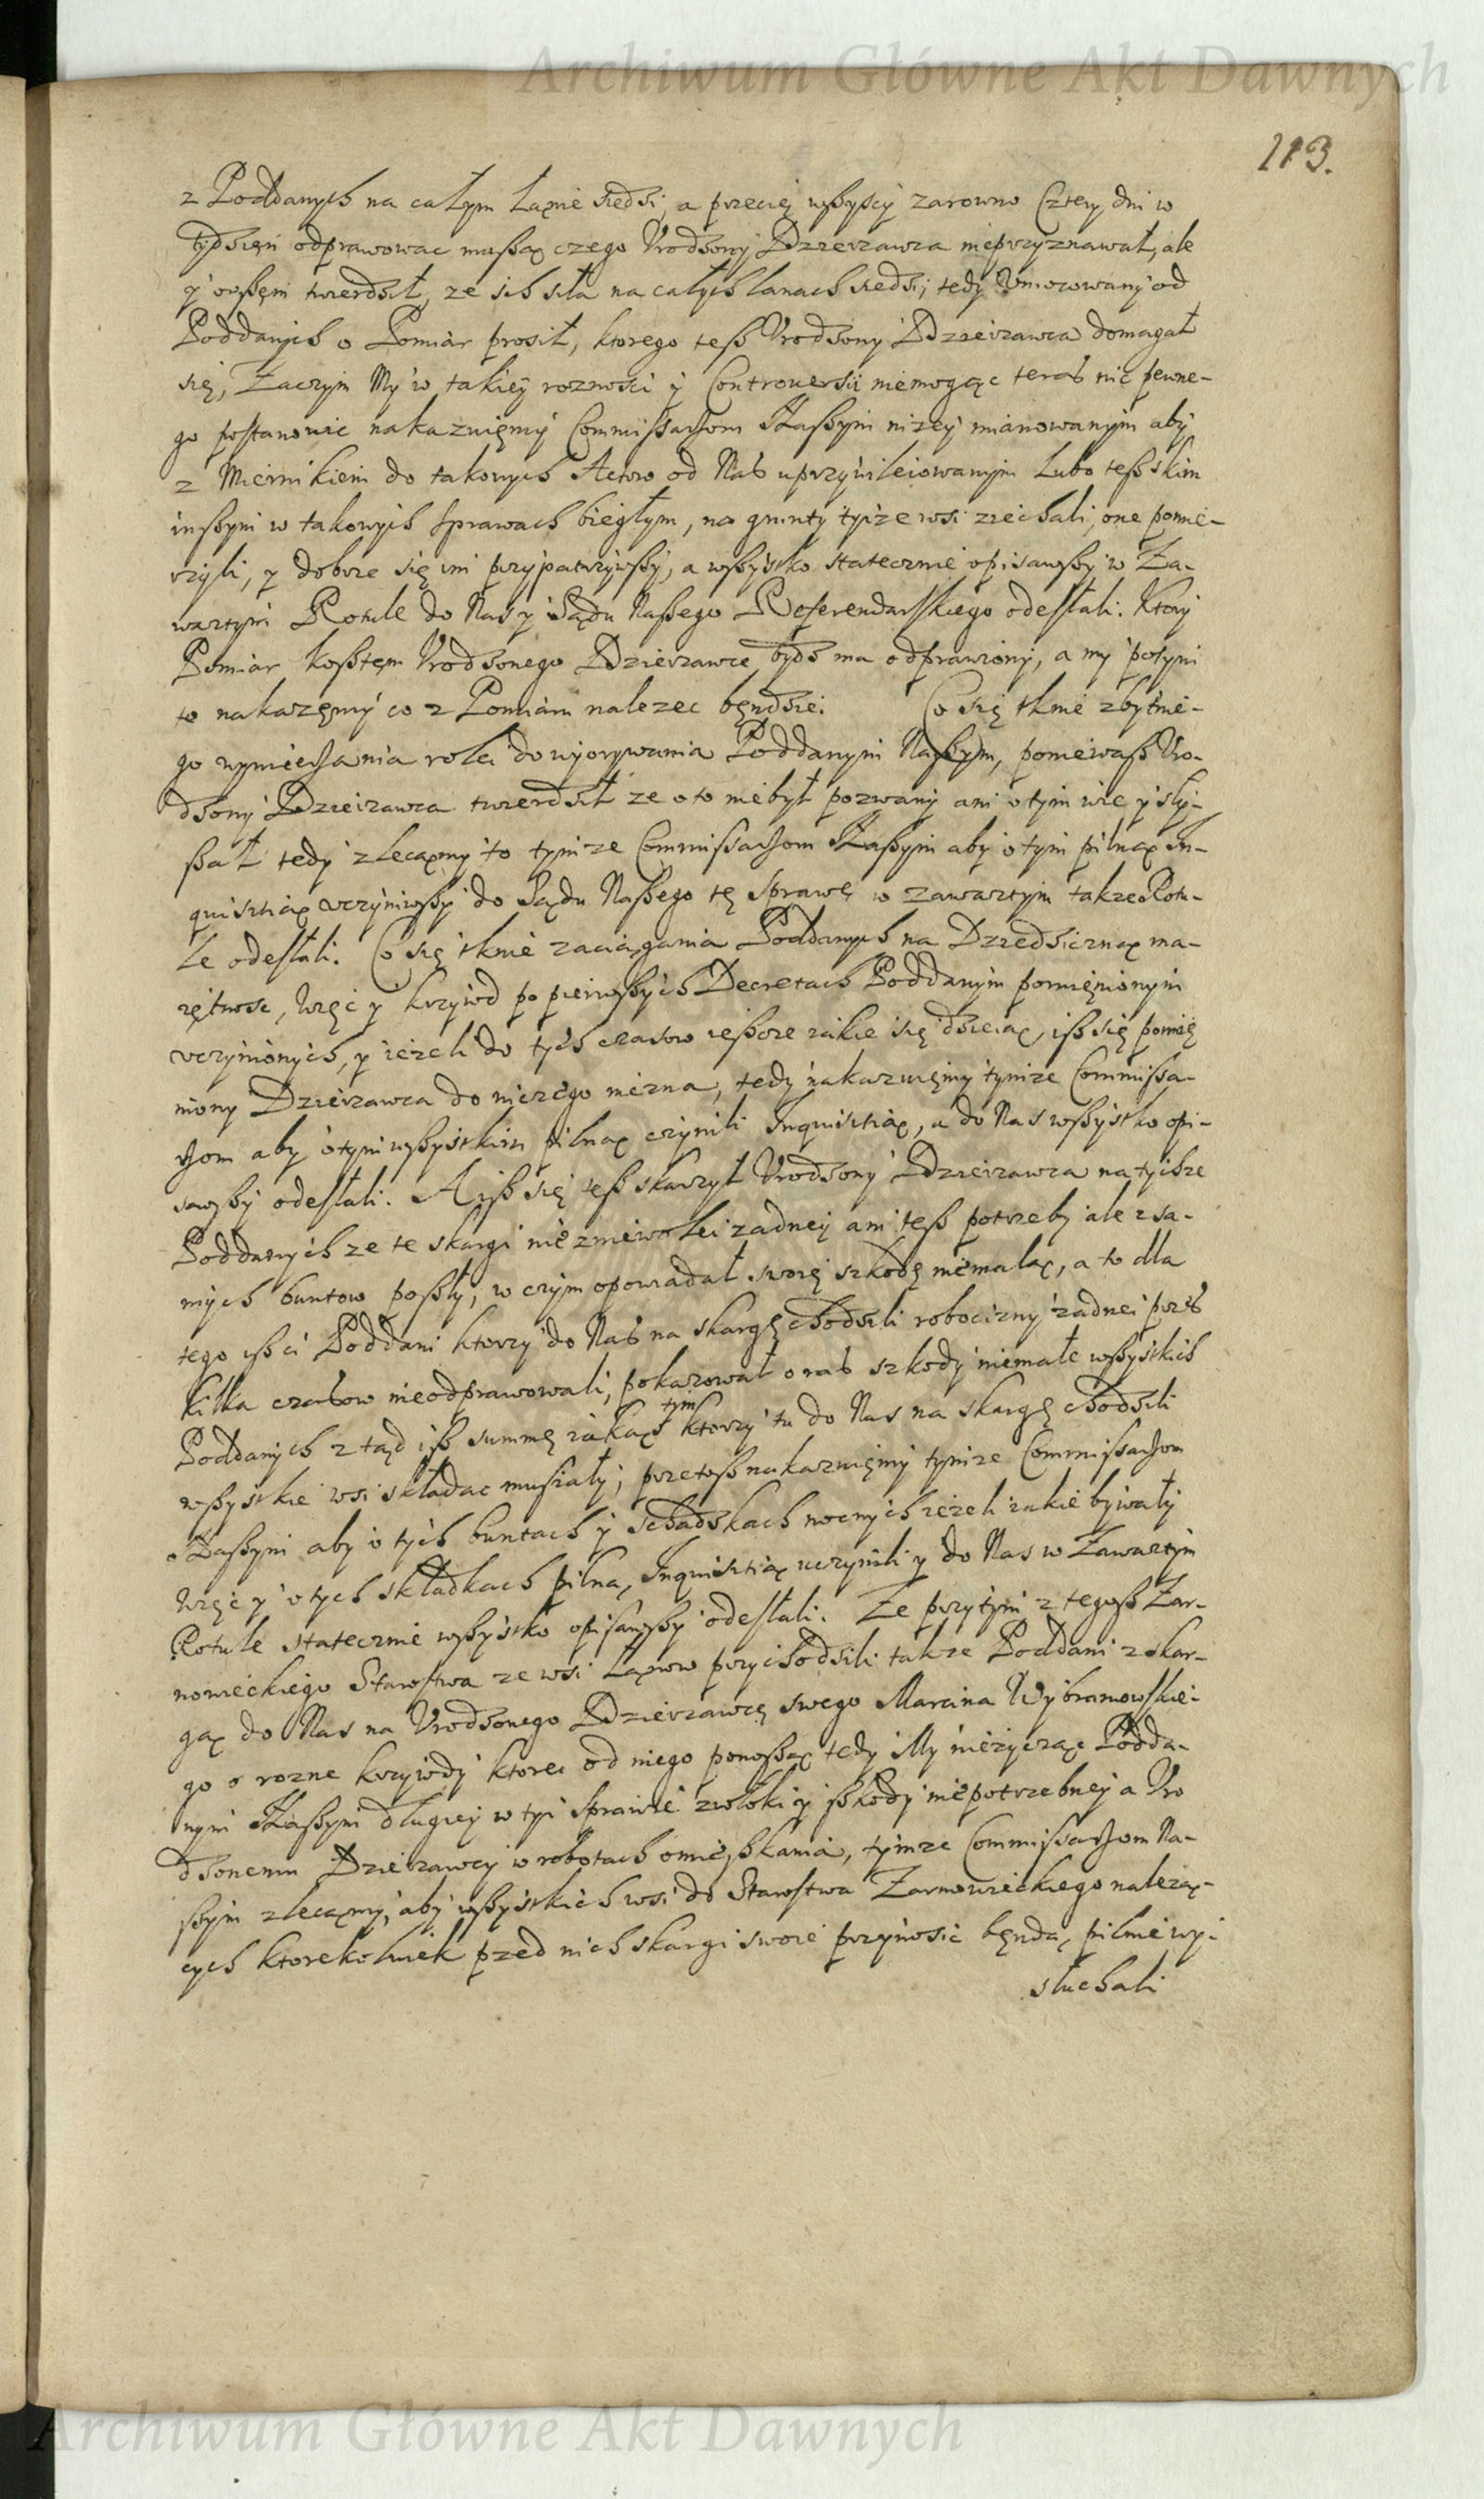 Archiwum Główne Akt Dawnych
113.
z Poddanych na całym łanie siedzi, a przecię wszyscy zarowno Cztery dni w
tydzień odprawowac muszą czego Vrodzony Dzierzawca nieprzyznawał, ale
y owszem twierdził, ze ich siła na całych łanach siedzi; tedy Vmocowany od
Poddanych o Pomiar prosił, ktorego tesz Vrodzony Dzierzawca domagał
się, Zaczym My w takiey roznosci y Controuersii niemogąc teraz nic pewne-
go postanowic nakazuięmy Commissarzom Naszym nizey mianowanym aby
z Miernikiem do takowych Actow od Nas uprzywileiowanym Lubo tesz kim
inszym w takowych sprawach biegłym, na grunty tyize wsi ziechali, one pomie-
rzyli, y dobrze się im przypatrzywszy, a wszystko statecznie opisawszy w Za-
wartym Rotule do Nas y Sądu Naszego Referendarskiego odesłali. Ktory
Pomiar kosztem Vrodzonego Dzierzawce bydz ma odprawiony, a my potym
to nakazęmy co z Pomiaru nalezec będzie. Co się tknie zbytnie-
go wymierzania rolei do wyorywania Poddanym Naszym, poniewasz Vro-
dzony Dzierzawca twierdził ze oto niebył pozwany ani o tym wie y sły-
szał tedy zlecamy to tymze Commissarzom Naszym aby o tym pilną In-
quisitią vczyniwszy do Sądu Naszego tę sprawę w zawartym takze Rotu-
le odesłali. Co się tknie zaciągania Poddanych na Dziedziczną ma-
iętnosc, więc y krzywd po pierwszych Decretach Poddanym pomięnionym
vczynionych, y iezeli do tych czasow ieszcze iakie się dzieią, isz się pomię
niony Dzierzawca do niczego niezna, tedy nakazuięmy tymze Commissa-
rzom aby o tym wszystkim pilną czynili Inquisitią, a do Nas wszystko opi-
sawszy odesłali. A isz się tesz skarzył Vrodzony Dzierzawca na tychze
Poddanych ze te skargi nie z niewolei zadney ani tesz potrzeby ale z sa-
mych buntow poszły, w czym opowiadał swoię szkodę niemałą, a to dla
tego isz ci Poddani ktorzy do Nas na skargę chodzili robocizny zadnei przez
kilka czasow nieodprawowali, pokazował oraz szkody niemałe wszystkich
Poddanych ztąd isz summę iakąś tym ktorzy tu do Nas na skargę chodzili
wszystkie wsi składac musiały; przetosz nakazuięmy tymze Commissarzom
Naszym aby o tych buntach y schadzkach nocnych iezeli iakie bywały
więc y o tych składkach pilną Inquisitią uczynili y do Nas w Zawartym
Rotule statecznie wszystko opisawszy odesłali. Ze przytym z tegosz Zar-
nowieckiego Starostwa ze wsi Łanow przychodzili takze Poddani z skar-
gą do Nas na Vrodzonego Dzierzawcę swego Marcina Wybranowskie-
go o rozne krzywdy ktorei od niego ponoszą tedy My nieżycząc Podda-
nym Naszym długiey w tyi sprawie zwłoki y szkody niepotrzebney a Vro
dzonemu Dzierzawcy w robotach omięszkania, tymze Commissarzom Na-
szym zlecamy, aby wszystkich wsi do Starostwa Zarnowieckiego nalezą-
cych ktorekolwiek przed nich skargi swoie przynosic będą, pilnie wy-
słuchali
Archiwum Główne Akt Dawnych